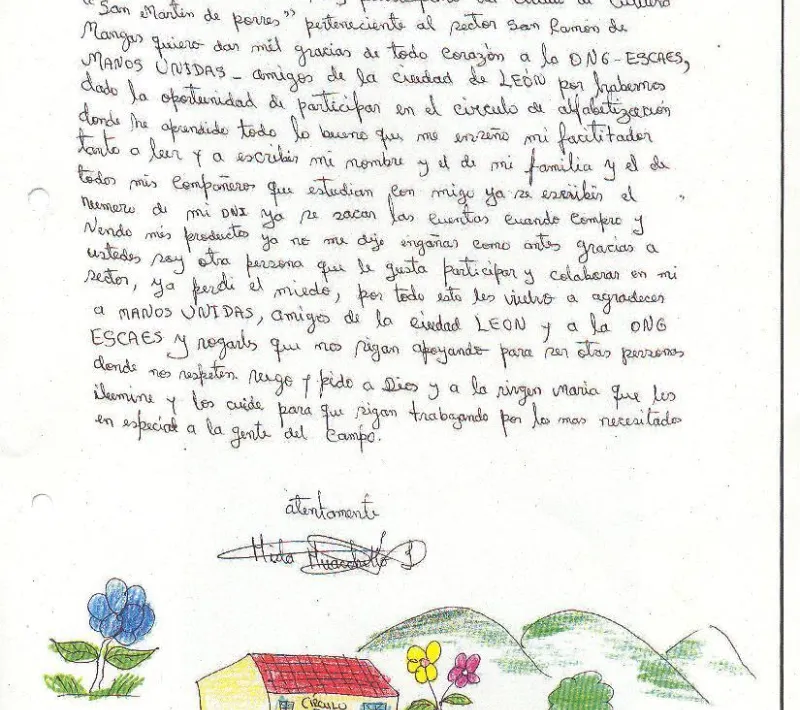 "San Martin de porres" perteneciente al sector San Ramón de
Mangas quiero dar mil gracias de todo corazón a la ONG-ESCAES,
MANOS UNIDAS - amigos de la ciudad de LEÓN por habernos
dado la oportunidad de participar en el circulo de alfabetización
donde he aprendido todo lo bueno que me enseño mi facilitador
tanto a leer y a escribir mi nombre y el de mi familia y el de
todos mis compañeros que estudian con migo ya se escribir el
numero de mi DNI ya se sacar las cuentas cuando compro y
vendo mis productos ya no me dejo engañar como antes gracias a
ustedes soy otra persona que le gusta participar y colaborar en mi
sector, ya perdi el miedo, por todo esto les vuelvo a agradecer
a MANOS UNIDAS, amigos de la ciudad LEON y a la ONG
ESCAES y rogarles que nos sigan apoyando para ser otras personas
donde nos respeten ruego y pido a Dios y a la virgen Maria que los
ilumine y los cuide para que sigan trabajando por los mas necesitados
en especial a la gente del campo.
atentamente
CÍRCULO